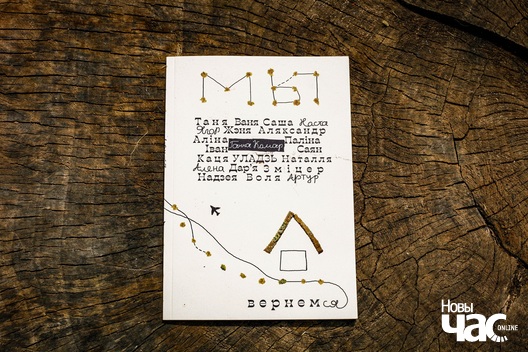 мы
Таня Ваня Саша Наста
Ягор Жэня Аляксандр
Аліна Паліна
Іван Ганна Комар Саян
Каця УЛАДЗЬ Наталля
Алена Дар'я Зміцер
Надзея Воля Артур
вернемся
Новы
Час
ONLINE